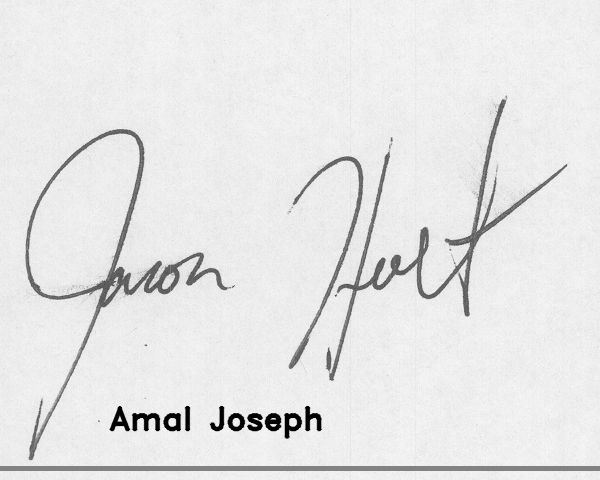 Jason Holt
Amal Joseph